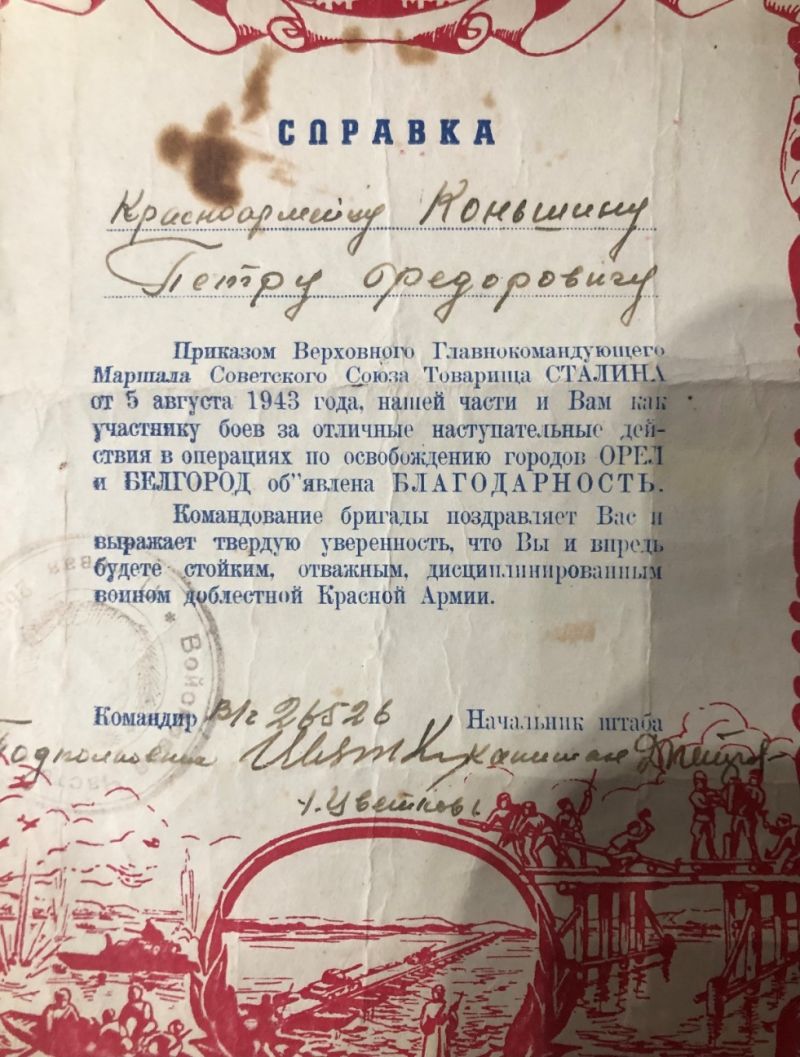 СПРАВКА
Красноармейцу Коньшину
Петру Федоровичу
Приказом Верховного Главнокомандующего
Маршала Советского Союза Товарища СТАЛИНА
от 5 августа 1943 года, нашей части и Вам как
участнику боев за отличные наступательные дей-
ствия в операциях по освобождению городов ОРЕЛ
и БЕЛГОРОД об"явлена БЛАГОДАРНОСТЬ.
Командование бригады поздравляет Вас и
выражает твердую уверенность, что Вы и впредь
будете стойким, отважным, дисциплинированным
воином доблестной Красной Армии.
Командир в/ч 26526 Начальник штаба
Подполковник капитан
/.Цветков/